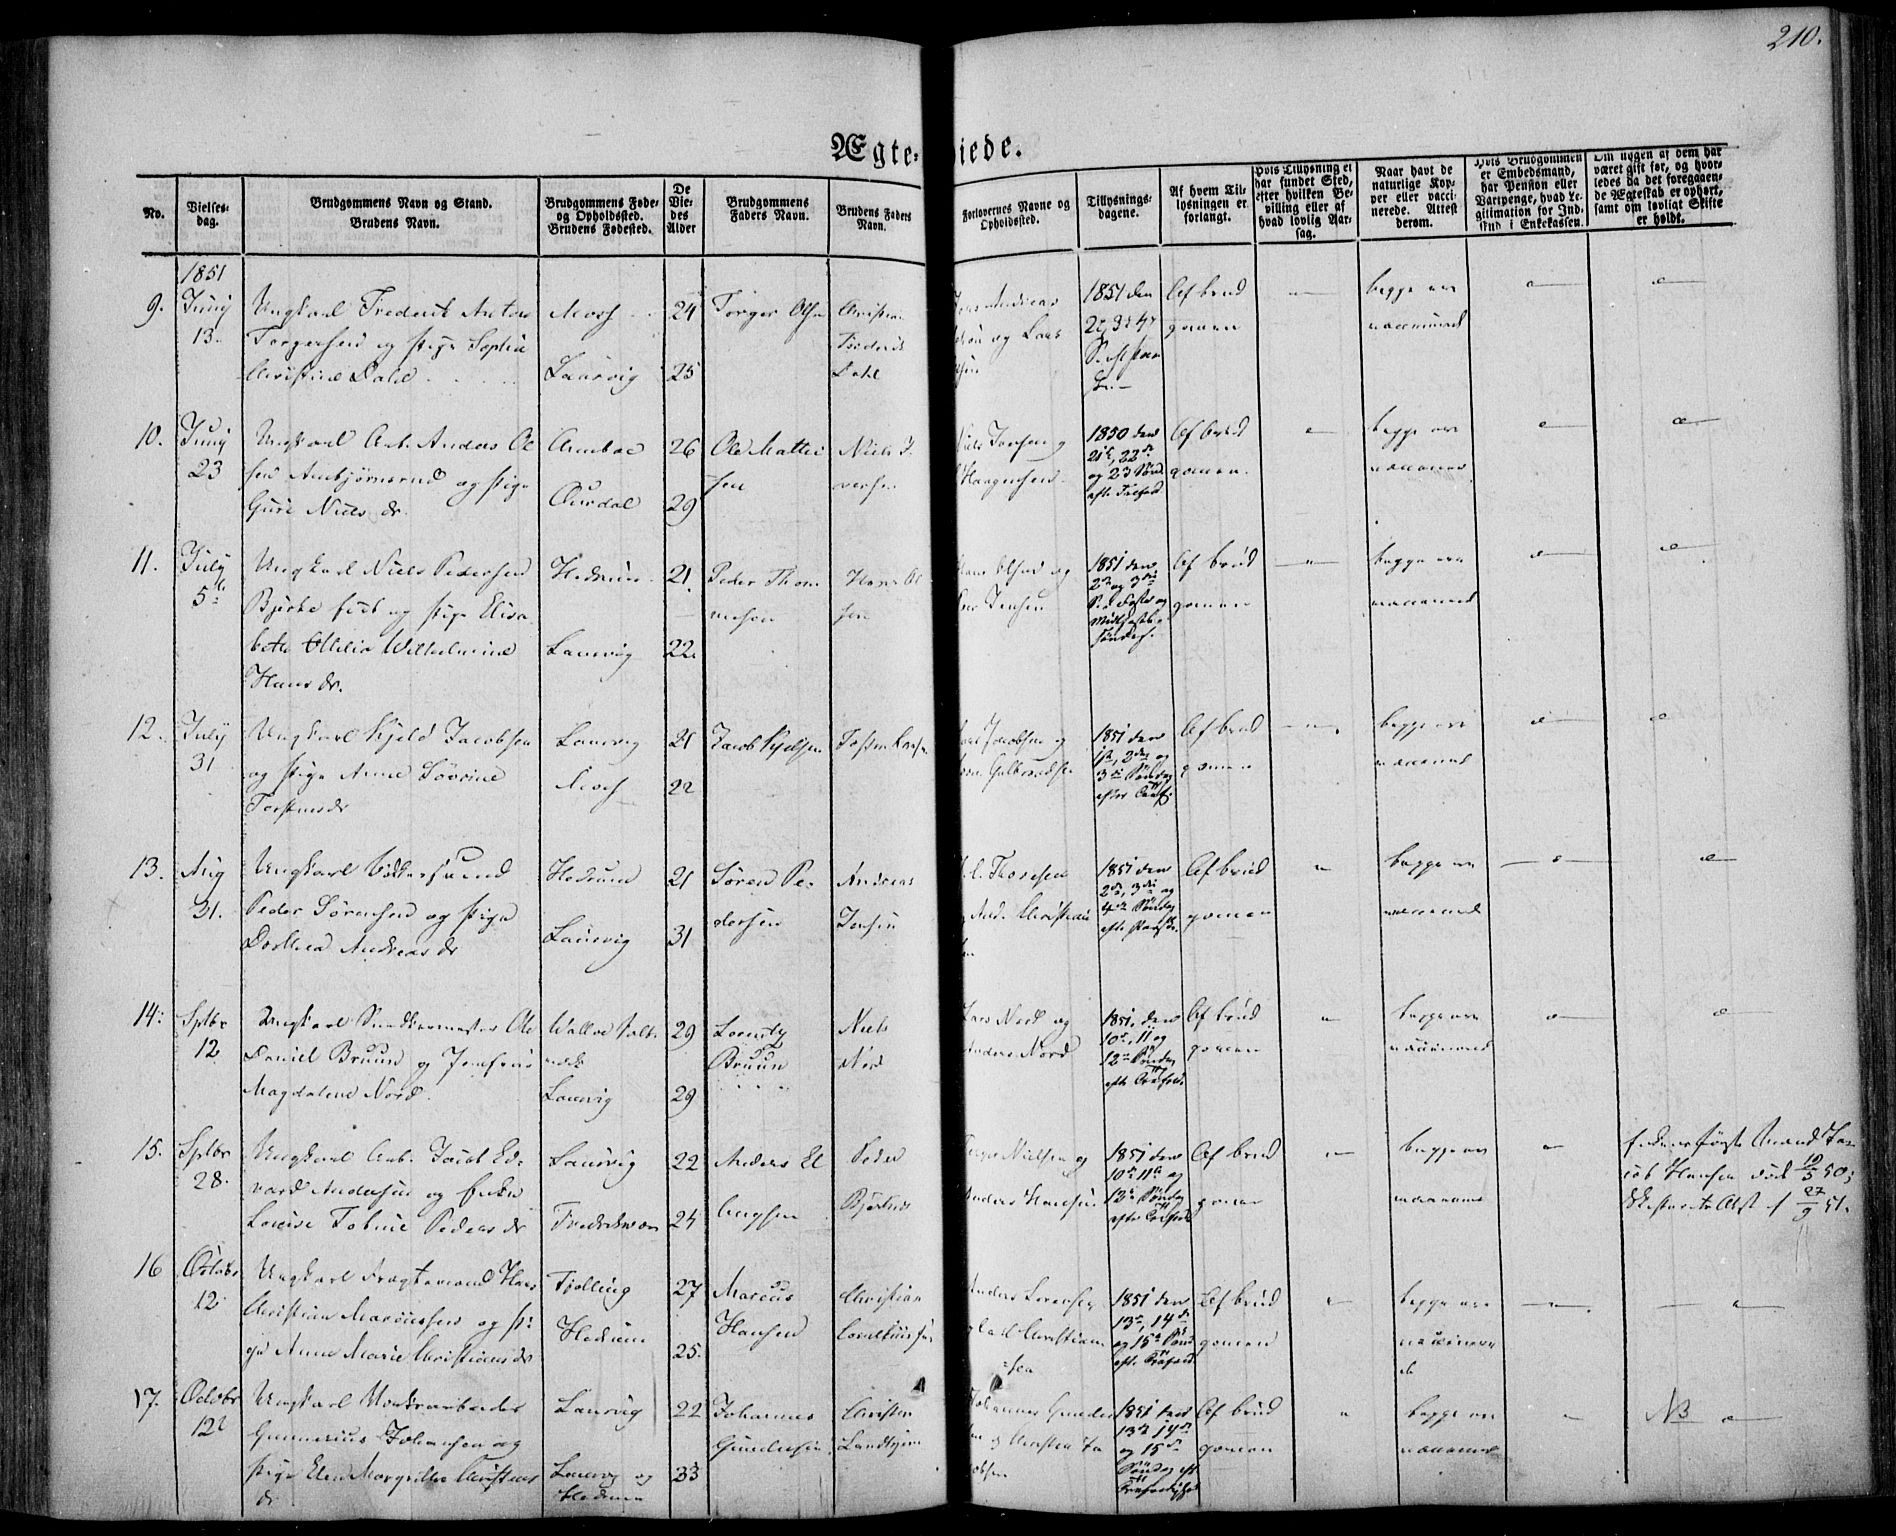 210.
Ægte=viede.
No.
Vielses-
dag.
Brudgommens Navn og Stand.
Brudens Navn.
Brudgommens Føde-
og Opholdssted.
Brudens Fødested.
De
Vie-
des
Alder
Brudgommens
Faders Navn.
Brudens Faders
Navn.
Forlovernes Navne og
Opholdssted.
Tillysnings-
dagene.
Af hvem Til-
lysningen er
forlangt.
Hvis Tillysning ei
har fundet Sted,
efter hvilken Be-
villing eller af
hvad lovlig Aar-
sag.
Naar havt de
naturlige Kop-
per eller vacci-
nerede. Attest
derom.
Hvis Brudgommen
er Embedsmand,
har Pension eller
Vartpenge, hvad Le-
gitimation for Ind-
skud i Enkekassen.
Om nogen af dem har
været gift før, og hvor-
ledes da det foregaaen-
de Ægteskab er ophørt,
samt om lovligt Skifte
er holdt.
1851
9. Juny
13.
Ungkarl Frederik Anton
Torgersen og Pige Sophie
Christine Dahl
Moss
Laurvig
24
25
Torger Olsen
Christian
Frederik
Dahl
og Lars
1851 den
2den 3d 4d
Af brud
gomen
begge ere
vaccinered
10. Juny
23
Ungkarl Arb. Anders Ol
sen Ambjørnsrud og Pige
Guri Niels dr.
Aurdal
26
29
Ole Matti
sen
Niels I
versen
Niels Jensen og
Haagensen
1850 den
21d, 22de
og 23 Sønd.
efter Trefold.
Af brud
gomen.
begge ere
11. July
5te
Ungkarl Niels Pedersen
Bjerke født og Pige Elisa
beth Ottilia Wilhelmine
Hans dr.
Hedrum
Laurvig
21
22
Peder Thom
mesen
Hans Ol
sen
Hans Olsen og
Jensen
1851 den
2d og 3die
S. i Faste og
Midfaste
Søndag.
Af brud
gomen
begge ere
vaccinered
12. July
31
Ungkarl Kjeld Jacobsen
og Pige Anne Sørine
Torstensdr
Laurvig
Moss
21
22
Jacob Kjelsen
Torsten Larsen
Jacobsen og
Gulbrandsen
1851 den
1ste, 2den og
3die Søndag
efter
Af brud
gomen
begge ere
vaccinered
13. Aug
31.
Ungkarl
Peder Sørensen og Pige
Dorthea Andreas dr
Hedrum
Laurvig
21
31
Søren Pe-
dersen
Andreas
Jensen
Thoresen
og And. Christian
1851 den
2den, 3die og
4de Søndag
efter Paaske.
Af brud
gomen
begge ere
vaccinered
14. Sptbr
12
Ungkarl Ole
Daniel Bruun og Jomfru
Magdalene Nord.
Laurvig
29
29
Lorentz
Bruun
Niels
Nord
Lars Nord og
Anders Nord
1851 den
10de, 11 og
12te Søndag
efter Trefold.
Af brud
gomen
begge ere
vaccinered
15. Sptbr
28.
Ungkarl Arb. Jacob Ed-
vard Andersen og Enke
Lovise Tobine Peders dr
Laurvig
Fredriksværn
22
24
Anders El
lingsen
Peder
Bjerknes
Nielsen og
Anders Hansen
1851 den
10de 11te og
12te Søndag
efter Trefold.
Af brud
gomen
begge ere
vaccinered
Enkens første Mand Ja-
cob Hansen død 19/5 50;
Skifteretts Attst af 27/9 51.
16 Octobr
12
Ungkarl Fragtemand Hans
Christian Marcussen og Pi-
ge Anne Marie Christians dr
Tjølling
Hedrum
27
25.
Marcus
Hansen
Christian
Corneliussen
Anders Lorensen
og Carl Christian
sen
1851 den
13de, 14de
og 15de Sønd
efter Trefold.
Af brud
gomen
begge ere
vaccinere
de
17. Octobr
12te
Ungkarl Værksarbeider
Gunnerius Johansen og
Pige Elen Margrethe Christens
dr
Laurvig
Laurvig og
Hedrum
22
33
Johannes
Gundersen
Christen
Johannes Gunder
sen og Christen Ja
cobsen
1851 den
13de 14de
og 15de
Søndag eft
Trefoldighed
Af brud
gomen
begge ere
vaccinered
NB